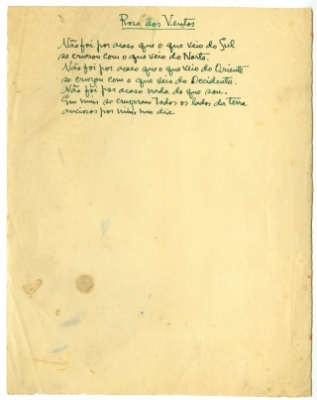 Rosa dos Ventos
Não foi por acaso que o que veio do Sul
se cruzou com o que veio do Norte.
Não foi por acaso que o que veio do Oriente
se cruzou com o que veio do Ocidente.
Não foi por acaso nada do que sou.
Em mim se cruzaram todos os lados da terra
ansiosos por mim um dia